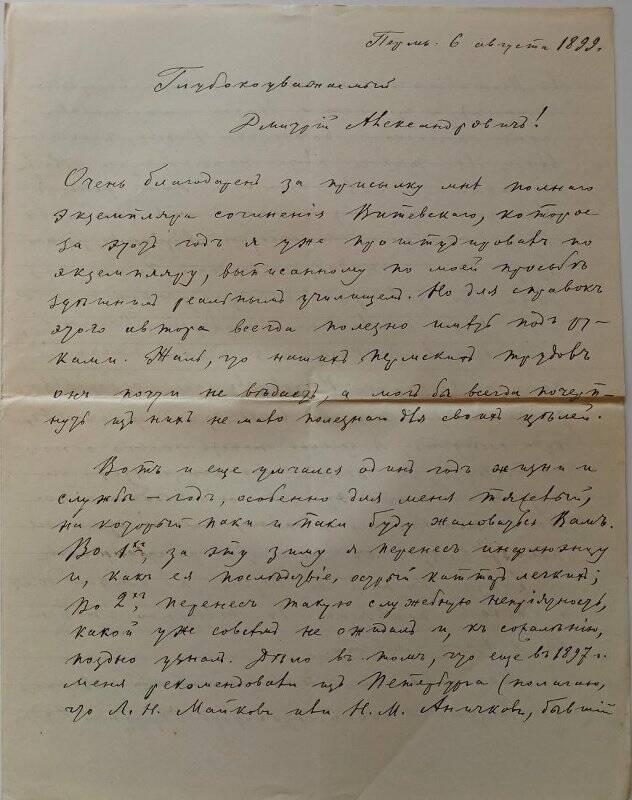 Пермь. 6 августа 1899.
Глубокоуважаемый
Дмитрій Александровичъ!
Очень благодаренъ за присылку мнѣ полнаго
экземпляра сочиненія Витевскаго, которое
за этотъ годъ я уже проштудировалъ по
экземпляру, выписанному по моей просьбѣ
здѣшнимъ реальнымъ училищемъ. Но для справокъ
этого автора всегда полезно имѣть подъ ру-
ками. Жаль, что нашихъ пермскихъ трудовъ
онъ почти не вѣдаетъ, а могъ бы всегда почерп-
нуть изъ нихъ не мало полезнаго для своихъ цѣлей.
Вотъ и еще умчался одинъ годъ жизни и
службы – годъ, особенно для меня тяжелый,
на который паки и паки буду жаловаться Вамъ.
Во 1хъ, за эту зиму я перенесъ инфлюэнцу
и, какъ ея послѣдствіе, острый катарръ легкихъ;
во 2хъ, перенесъ такую служебную непріятность,
какой уже совсѣмъ не ожидалъ и, къ сожалѣнію,
поздно узналъ. Дѣло въ томъ, что еще въ 1897 г.
меня рекомендовали изъ Петербурга (полагаю,
что Л. Н. Майковъ или Н. М. Аничковъ, бывшій